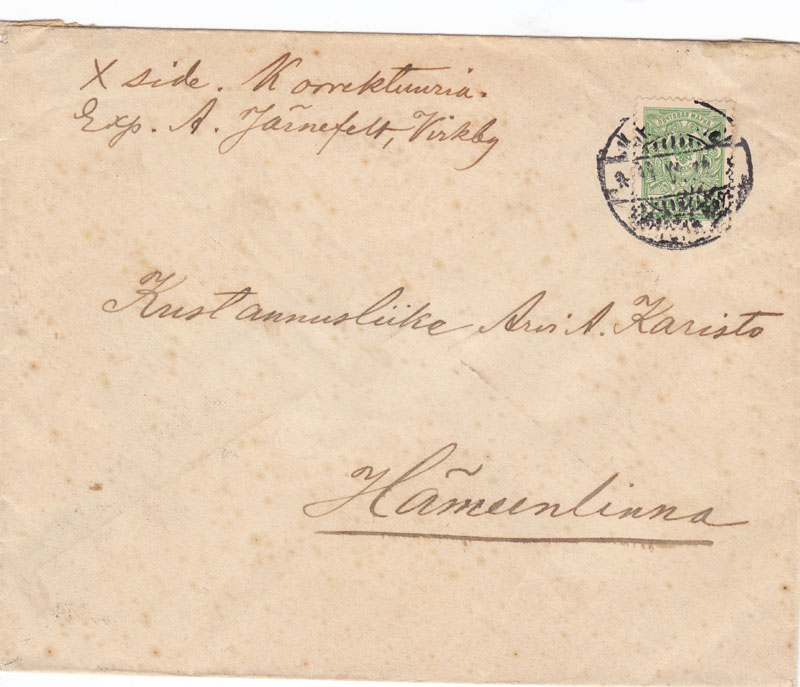 X side. Korrektuuria.
Exp. A. Järnefelt, Virkby
Kustannusliike Arvi A. Karisto
Hämeenlinna